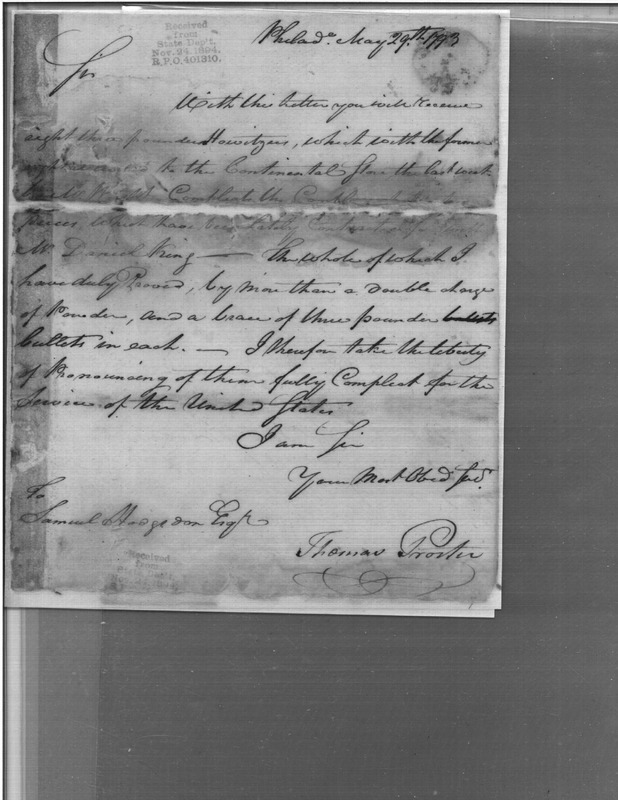 Received
from
State Dept.
Nov. 24. 1894.
R.P.O. 401310.
Philada. May 29th. 1793
Sir
With this Letter you will receive
eight three pounder Howitzers, which with the former
to the Continental Store the last week
Compleat the
pieces which have been lately
Mr Daniel King — the whole of which I
have duly Proved, by more than a double charge
of Powder, and a brace of three pounder bullets
bullets in each. — I therefore take the liberty
of Pronouncing of them fully Compleat for the
Service of the United States
I am Sir
Your Most Obed. Ser.
To
Samuel Hodgsdon Esqr
Thomas Procter
Received
from